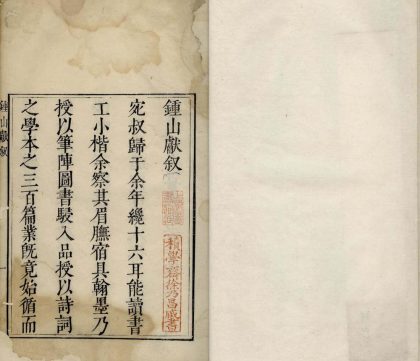 鍾山獻叙
宛叔歸于余年纔十六耳能讀書
工小楷余察其眉膴宿具翰墨乃
授以筆陣圖書駸入品授以詩詞
之學本之三百篇業旣竟始循而
鍾山獻叙
積學齋徐乃昌藏書